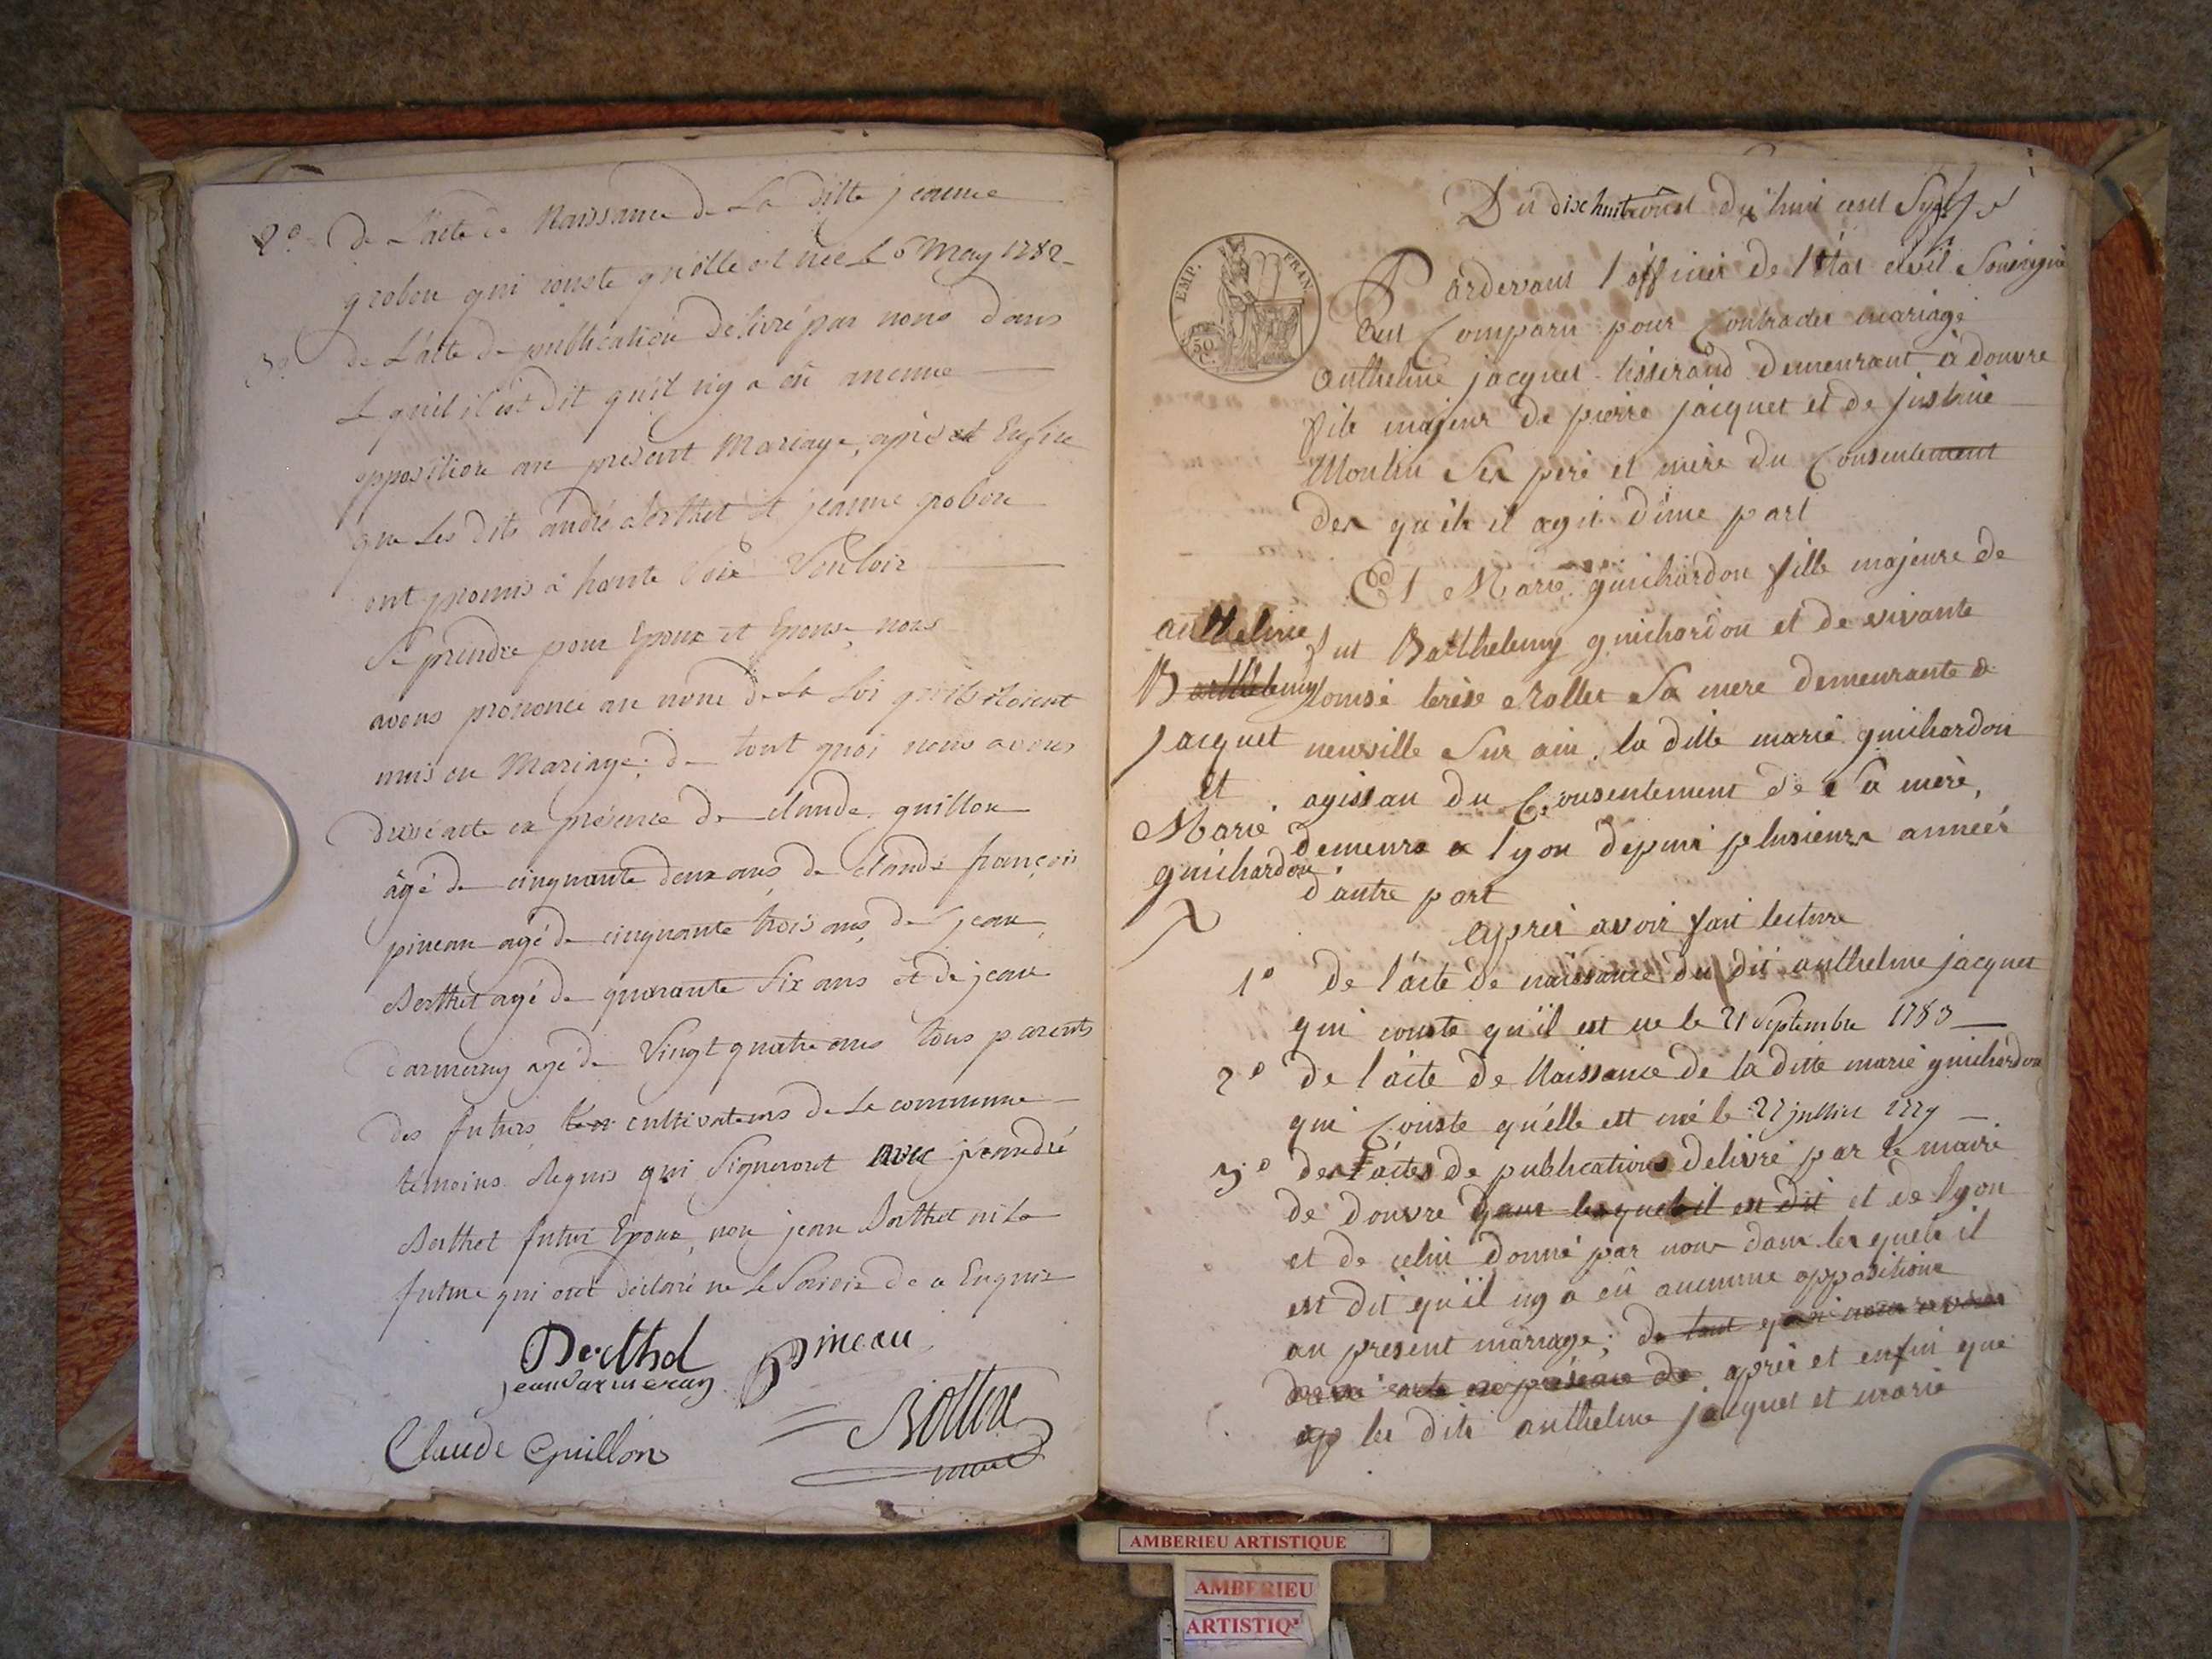 2º de L'acte de Naissance de La ditte jeanne
grobon qui conste qu'elle est née le 6 May 1782
3º de L'acte de publication délivré par nous dans
Lequel il est dit qu'il n'y a eû aucune
opposition au present Mariage, après et Enfin
que Les dits andré Berthet et jeanne grobon
ont promis à haute Voix Vouloir
Se prendre pour Epoux et Epouse, nous
avons prononcé au nom de La Loi qu'ils étoient
unis en Mariage; de tout quoi nous avons
dressé acte en présence de claude guillon
âgé de cinquante deux ans, de claude françois
pineau agé de cinquante trois ans, de jean
Berthet agé de quarante Six ans et de jean
agé de Vingt quatre ans tous parents
des futurs cultivateurs de Le commune
temoins Requis qui Signeront avec andré
Berthet futur Epoux, non jean Berthet ni La
future qui ont déclaré ne Le Savoir de ce Enquis
Berthet pineau
jean
Claude Guillon
maire
Du dix huit août dix huit cent
EMP. FRAN.
50 C.
Pardevant l'officier de l'Etat civil Soussigné
Ont Comparu pour Contracter mariage
anthelme jacquet tisserand demeurant à douvre
fils majeur de pierre jacquet et de justine
Moulin Ses peré et mere du Consentement
des quels il agit d'une part
Et Marie guichardon fille majeure de
anthelme
fut Barthelemy guichardon et de vivante
Barthelemy
Louise terese Rollet Sa mere demeurante a
jacquet
neuville Sur ain, la ditte marie guichardon
et
agissan du Consentement de Sa mere,
Marie
demeure a lyon depuis plusieurs années
guichardon
d'autre part
apres avoir fait lecture
1º de l'acte de naissance du dit anthelme jacquet
qui conste qu'il est ne le 21 Septembre 1783
2º de l'acte de Naissance de la ditte marie guichardon
qui Conste qu'elle est né le 27 juillet 1779
3º des actes de publications delivré par le maire
de douvre dans lesquels il est dit et de lyon
et de celui donné par nous dans les quels il
est dit qu'il n'y a eû aucunne opposition
au present mariage; de tout quoi nous avons
dressé acte en présence de après et enfin que
les dits anthelme jacquet et marie
AMBERIEU ARTISTIQUE
AMBERIEU
ARTISTIQ